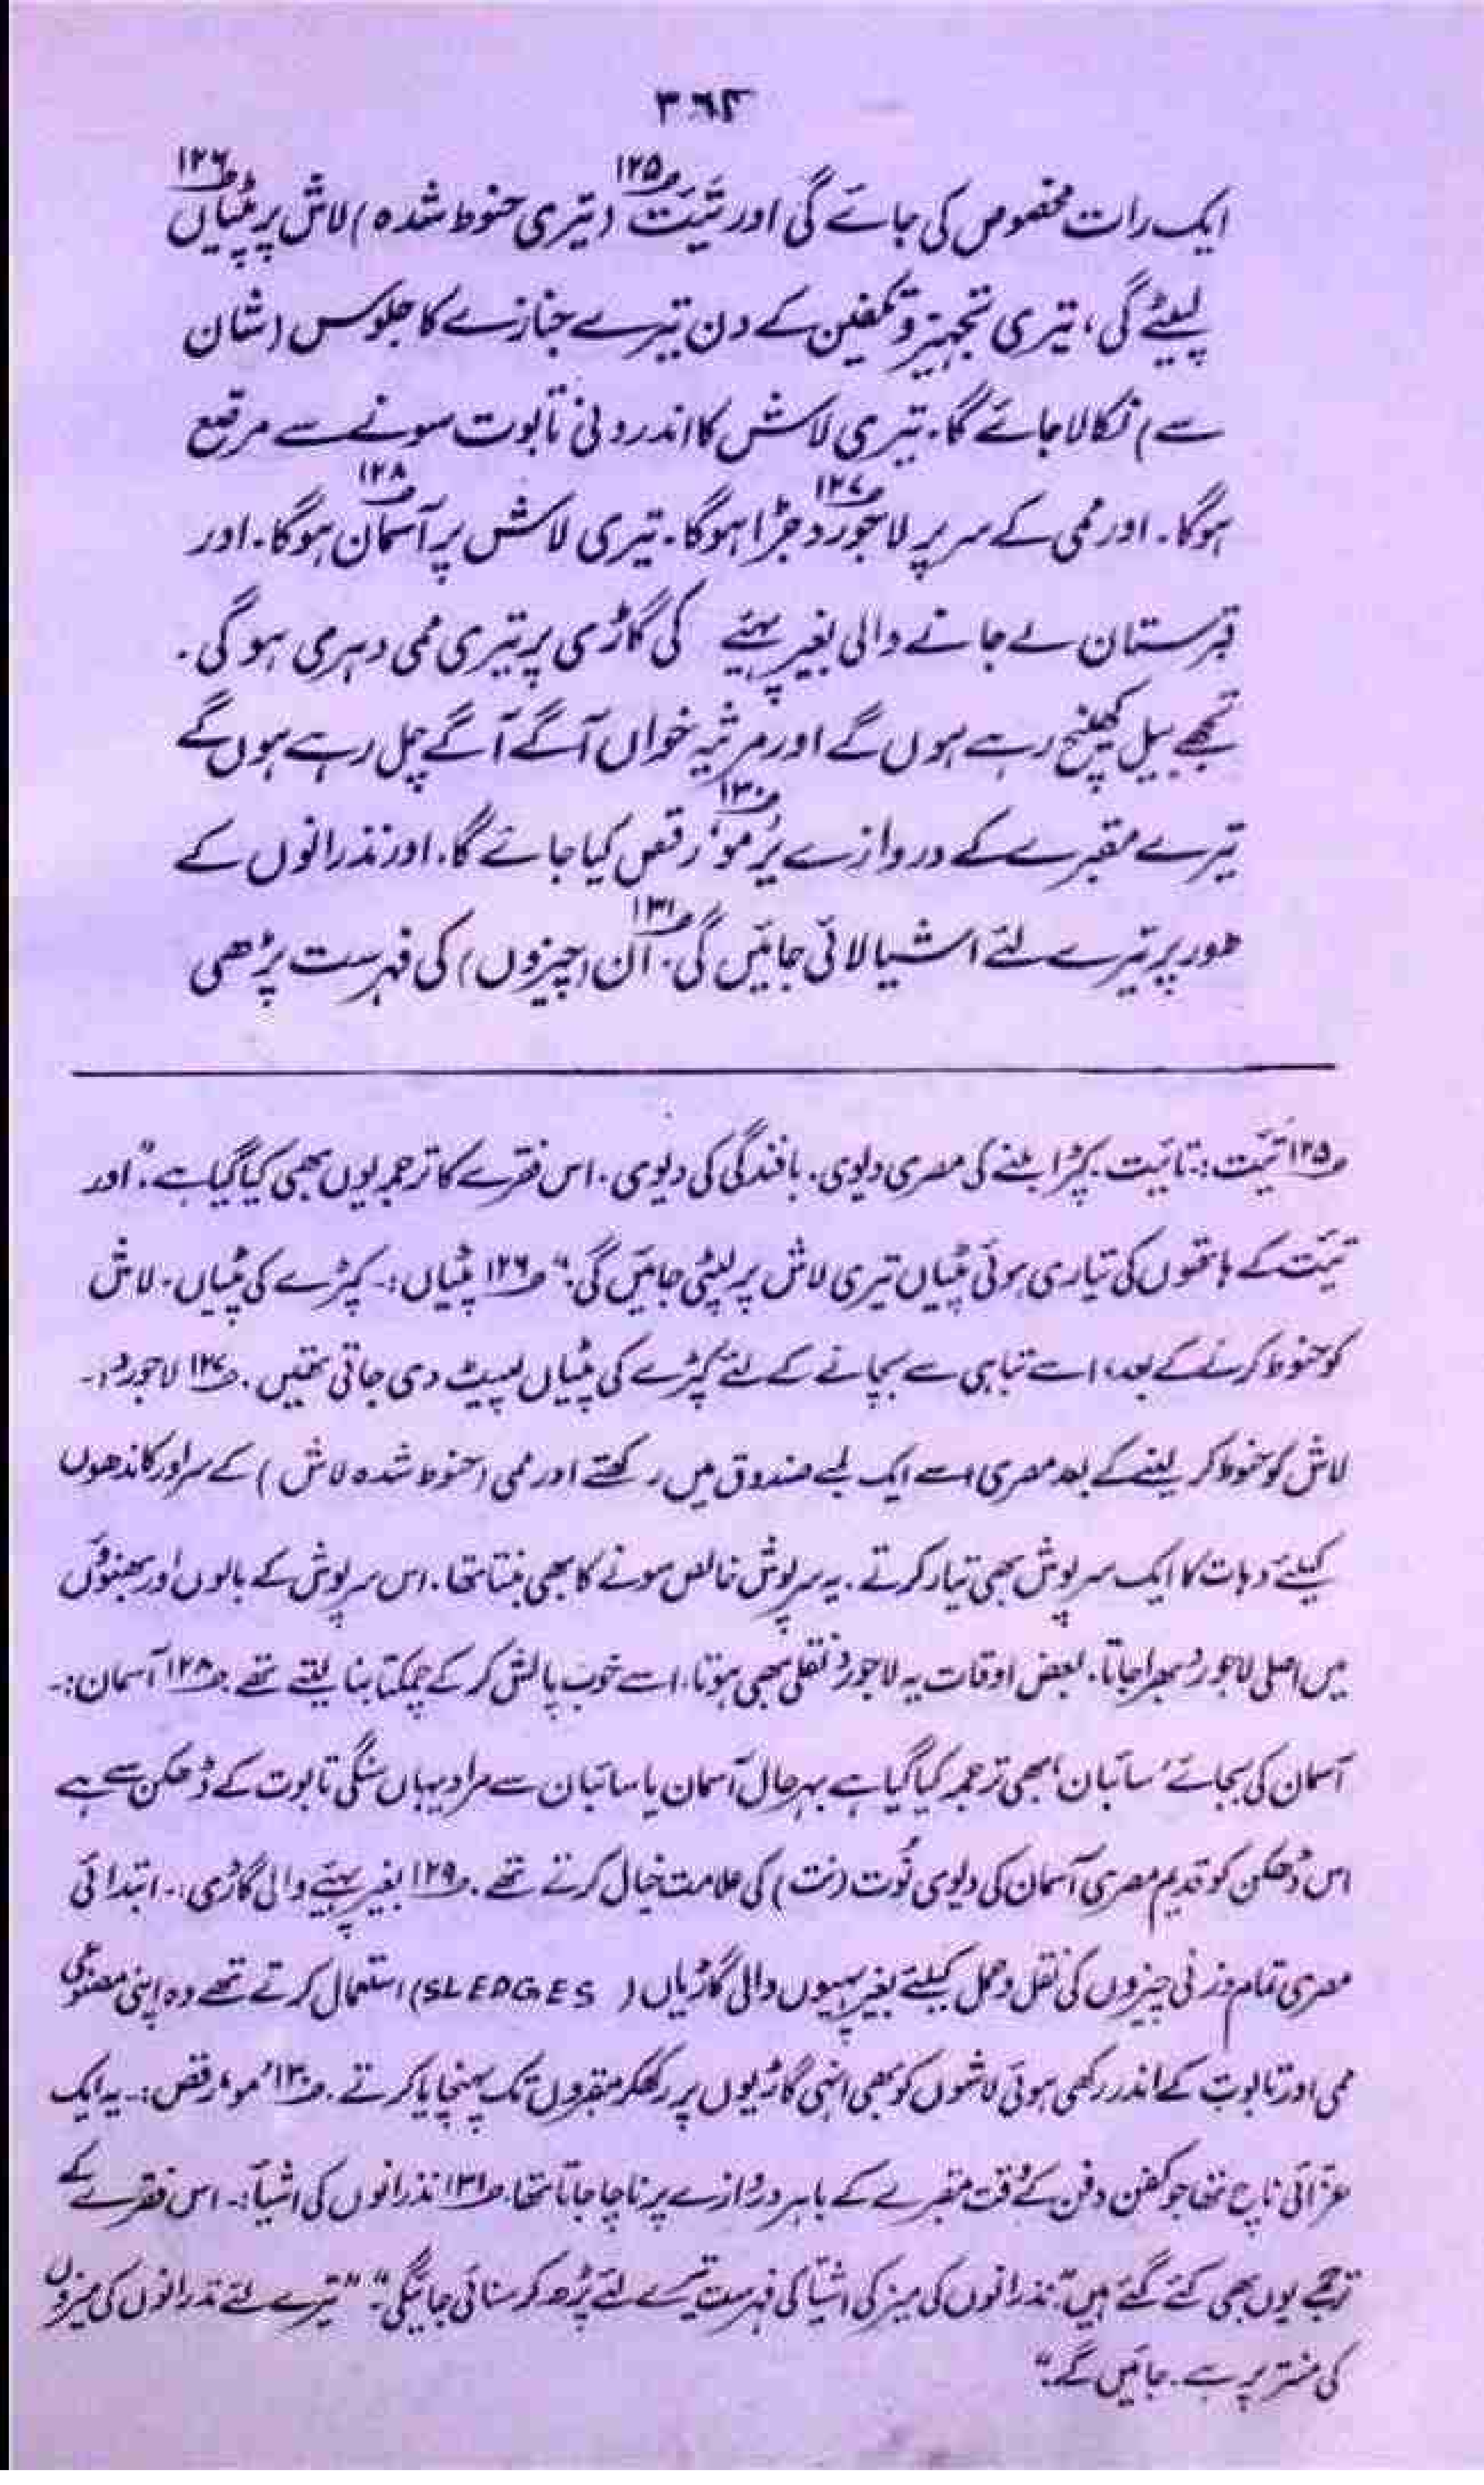 ۳۶۴
ایک رات مخصوص کی جائے گی اور تَیَت ؁۱۲۵ (تیری حنوط شدہ) لاش پر پٹیاں ؁۱۲۶
لپیٹے گی، تیری تجہیز و تکفین کے دن تیرے جنازے کا جلوس (شان
سے) نکالا جائے گا۔ تیری لاش کا اندرونی تابوت سونے سے مرقع
ہوگا۔ اور ممی کے سر پر لاجورد ؁۱۲۷ جڑا ہوگا۔ تیری لاش پر آسمان ؁۱۲۸ ہوگا۔ اور
قبرستان لے جانے والی بغیر پہیئے کی گاڑی پر تیری ممی دہری ہو گی۔
تجھے بیل کھینچ رہے ہوں گے اور مرثیہ خواں آگے آگے چل رہے ہوں گے
تیرے مقبرے کے دروازے پر ’مُو‘ ؁۱۳۰ رقص کیا جائے گا۔ اور نذرانوں کے
طور پر تیرے لئے اشیا لائی جائیں گی۔ ؁۱۳۱ ان (چیزوں) کی فہرست پڑھی
؁۱۲۵ تَیَت :۔ تائیت۔ کپڑا بننے کی مصری دیوی۔ بافندگی کی دیوی۔ اس فقرے کا ترجمہ یوں بھی کیا گیا ہے، "اور
تَیَت کے ہاتھوں کی تیاری ہوئی پٹیاں تیری لاش پر لپٹی جائیں گی۔" ؁۱۲۶ پٹیاں :۔ کپڑے کی پٹیاں۔ لاش
کو حنوط کرنے کے بعد، اسے تباہی سے بچانے کے لئے کپڑے کی پٹیاں لپیٹ دی جاتی تھیں۔ ؁۱۲۷ لاجورد :۔
لاش کو حنوط کر لینے کے بعد مصری اسے ایک لمبے صندوق میں رکھتے اور ممی (حنوط شدہ لاش) کے سر اور کاندھوں
کیلئے دہات کا ایک سرپوش بھی تیار کرتے۔ یہ سرپوش خالص سونے کا بھی بنتا تھا۔ اس سرپوش کے بالوں اور بھنوؤں
میں اصلی لاجورد بھرا جاتا۔ بعض اوقات یہ لاجورد نقلی بھی ہوتا، اسے خوب پالش کر کے چمکتا بنا لیتے تھے۔ ؁۱۲۸ آسمان :۔
آسمان کی بجائے ’سائبان‘ بھی ترجمہ کیا گیا ہے بہرحال آسمان یا سائبان سے مراد یہاں سنگی تابوت کے ڈھکن سے ہے
اس ڈھکن کو قدیم مصری آسمان کی دیوی نُوت (نت) کی علامت خیال کرتے تھے۔ ؁۱۲۹ بغیر پہیئے والی گاڑی :۔ ابتدائی
مصری تمام وزنی چیزوں کی نقل و حمل کیلئے بغیر پہیوں والی گاڑیاں (SLEDGES) استعمال کرتے تھے وہ اپنی مصنوعی
ممی اور تابوت کے اندر رکھی ہوئی لاشوں کو بھی انہی گاڑیوں پر رکھکر مقبروں تک پہنچایا کرتے۔ ؁۱۳۰ ’مُو‘ رقص :۔ یہ ایک
عزائی ناچ تھا جو کفن دفن کے وقت مقبرے کے باہر دروازے پر ناچا جاتا تھا۔ ؁۱۳۱ نذرانوں کی اشیأ :۔ اس فقرے کے
ترجمے یوں بھی کئے گئے ہیں "نذرانوں کی میز کی اشیأ کی فہرست تیرے لئے پڑھ کر سنائی جائیگی۔" "تیرے لئے نذرانوں کی میزوں
کی جائیں گے۔"